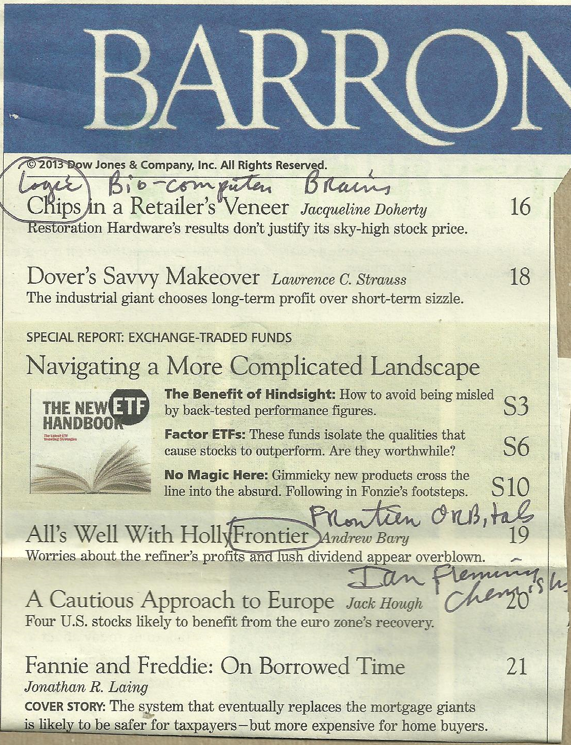 BARRON
© 2013 Dow Jones & Company, Inc. All Rights Reserved.
Logic Bio-computer Brains
Chips in a Retailer's Veneer Jacqueline Doherty 16
Restoration Hardware's results don't justify its sky-high stock price.
Dover's Savvy Makeover Lawrence C. Strauss 18
The industrial giant chooses long-term profit over short-term sizzle.
SPECIAL REPORT: EXCHANGE-TRADED FUNDS
Navigating a More Complicated Landscape
THE NEW ETF
HANDBOOK
The Benefit of Hindsight: How to avoid being misled
by back-tested performance figures. S3
Factor ETFs: These funds isolate the qualities that
cause stocks to outperform. Are they worthwhile? S6
No Magic Here: Gimmicky new products cross the
line into the absurd. Following in Fonzie's footsteps. S10
Frontier ORBitals
All's Well With HollyFrontier Andrew Bary 19
Worries about the refiner's profits and lush dividend appear overblown.
Ian Fleming
A Cautious Approach to Europe Jack Hough 20
Four U.S. stocks likely to benefit from the euro zone's recovery.
Fannie and Freddie: On Borrowed Time 21
Jonathan R. Laing
COVER STORY: The system that eventually replaces the mortgage giants
is likely to be safer for taxpayers—but more expensive for home buyers.